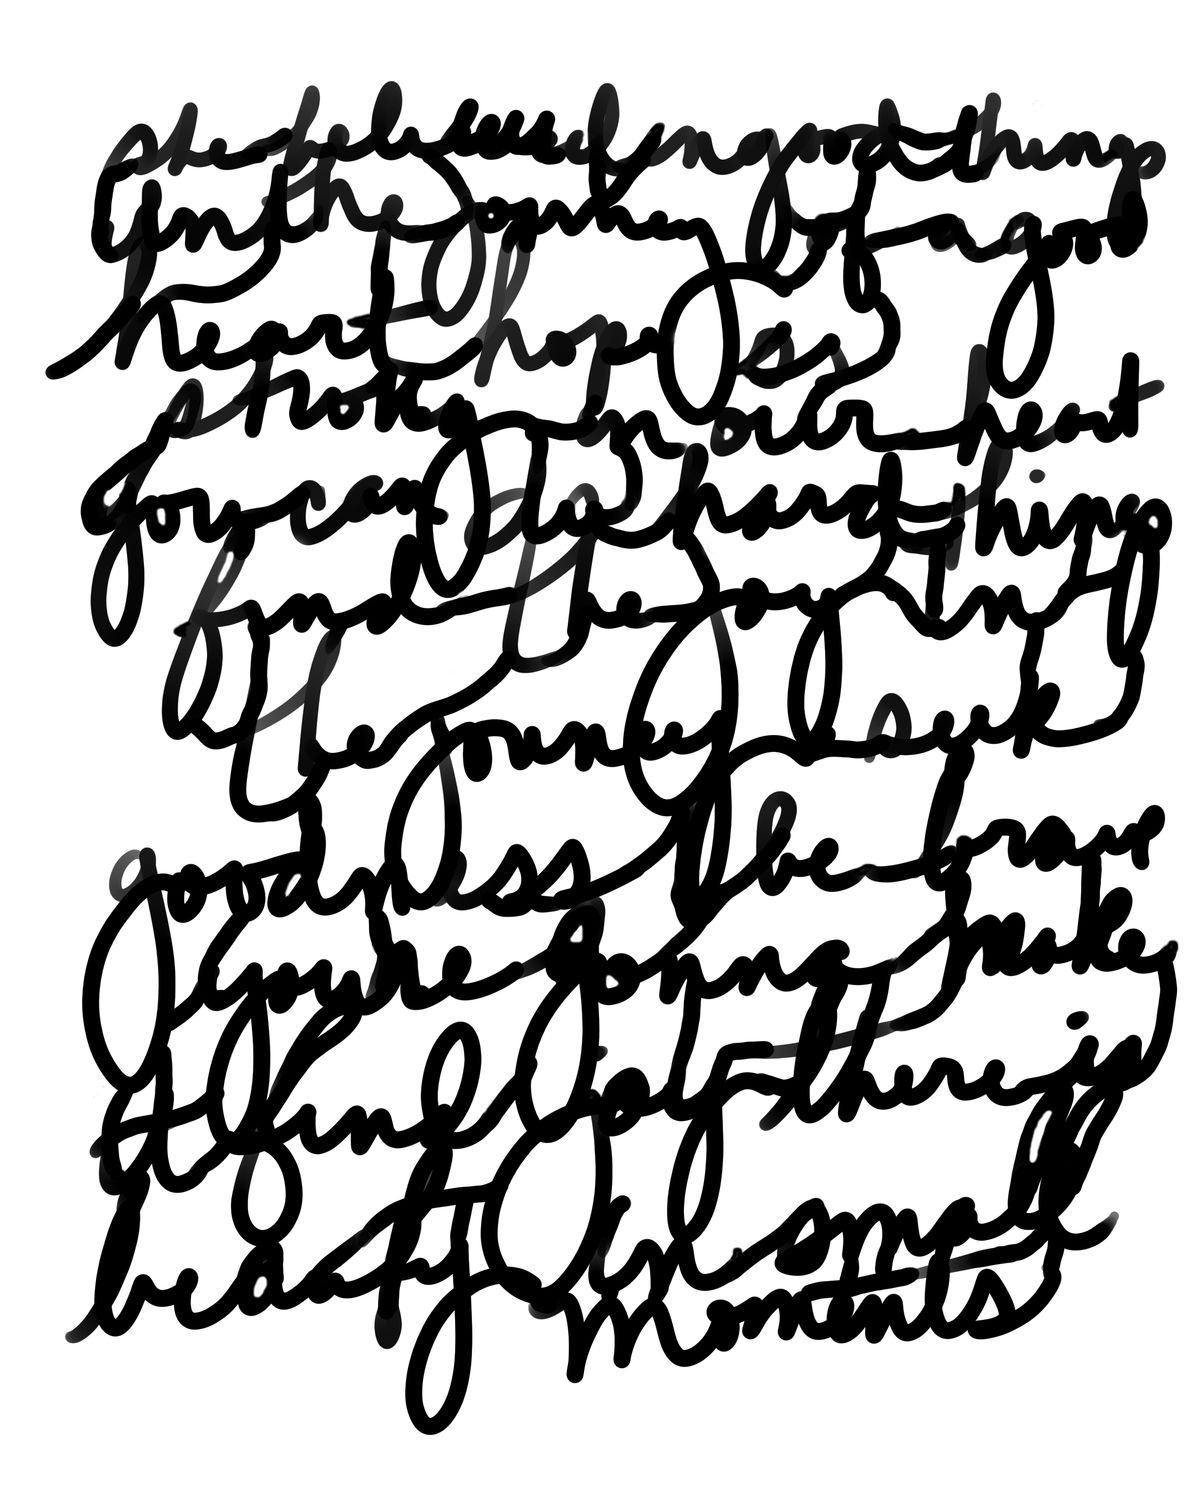 she believed in good things
in the journey of a good
heart hope is
strong in our heart
you can do hard things
find the joy in
the journey seek
goodness be brave
you're gonna make
it find joy there is
beauty in small
moments